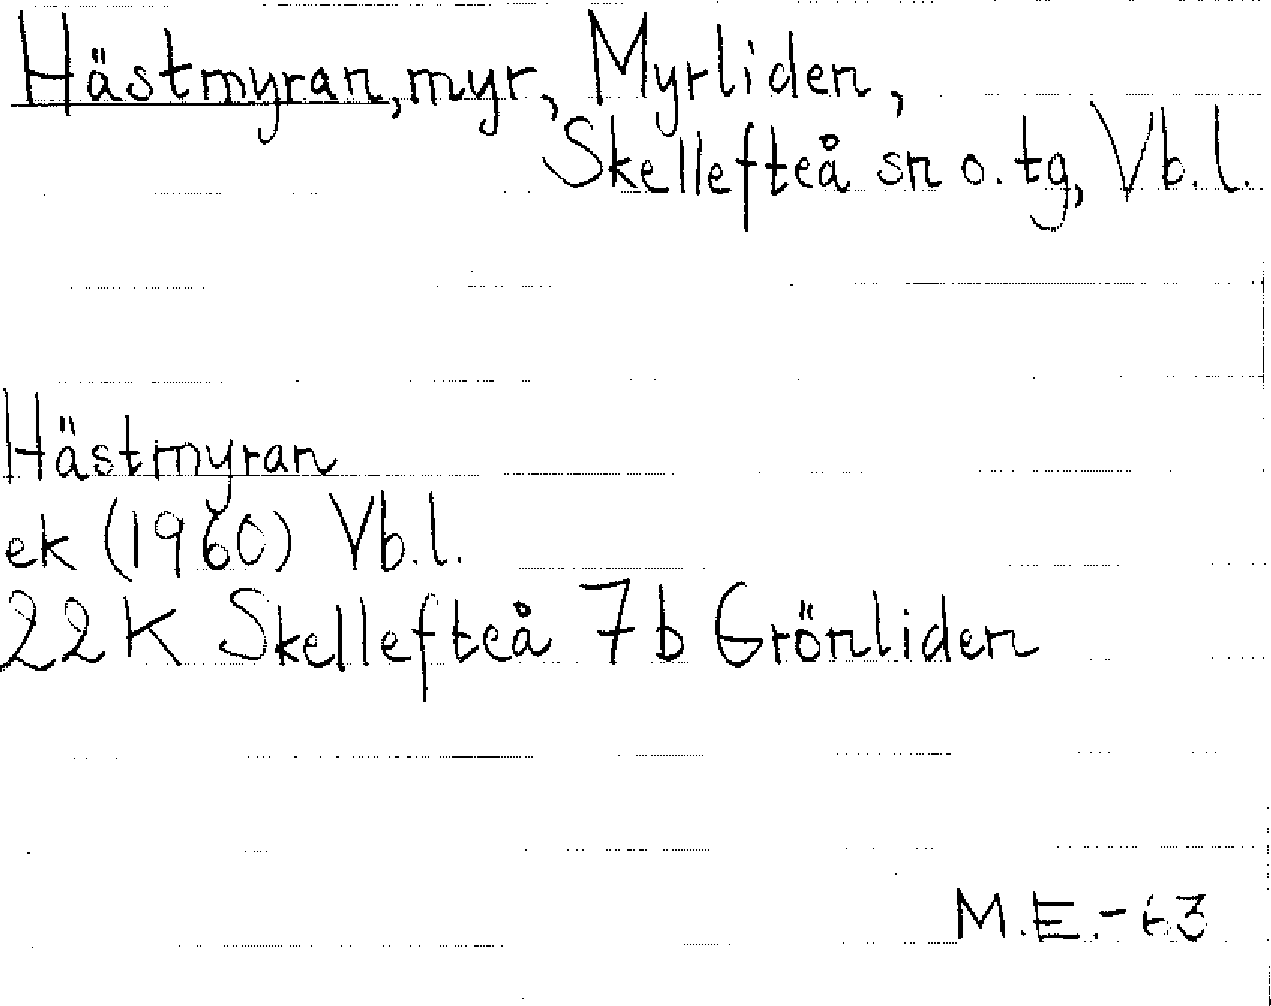 Hästmyran, myr, Myrliden,
Skellefteå sn o. tg, Vb.l.
Hästmyran
ek (1960) Vb.l.
22K Skellefteå 7b Grönliden
M.E.-63